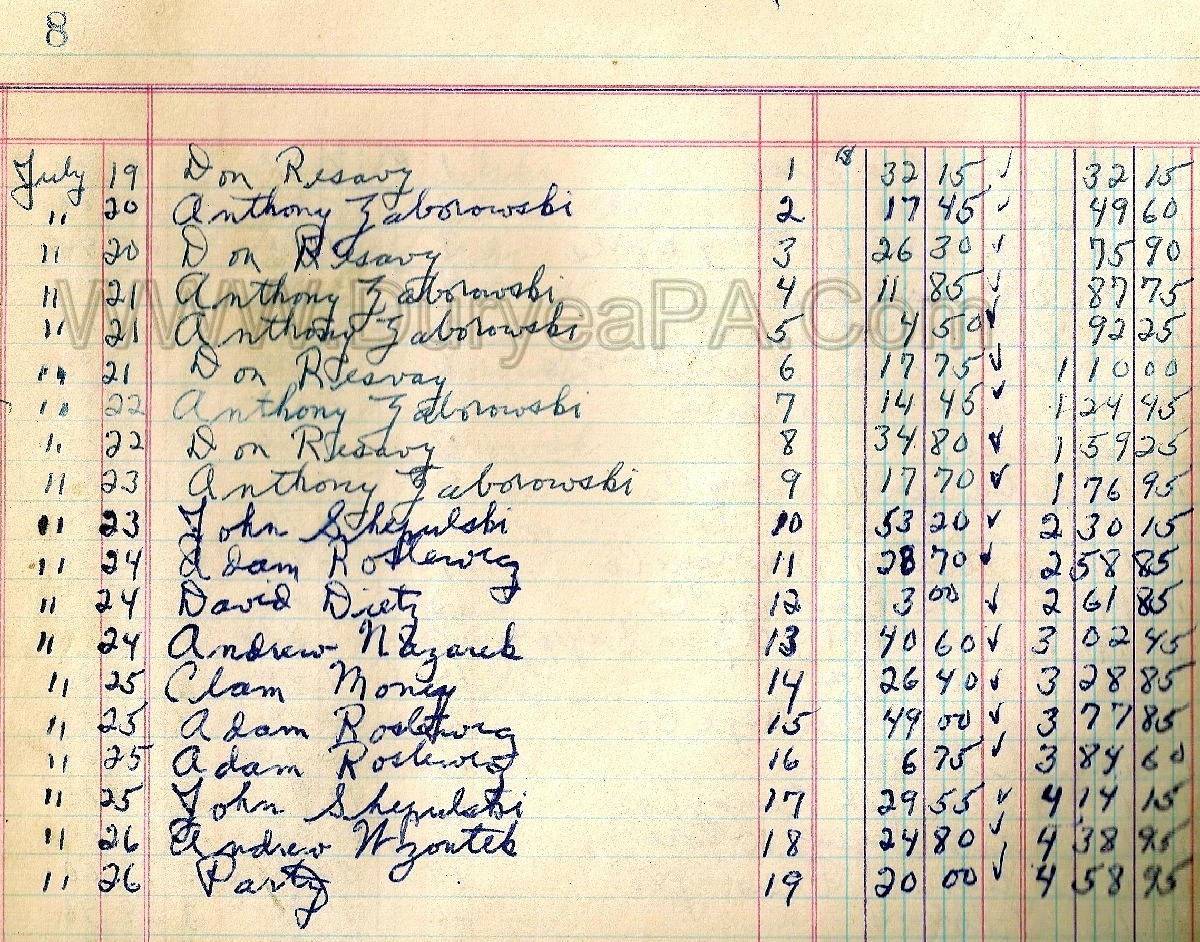 8
July 19 Don Resavy 1 32 15 ✓ 32 15
" 20 Anthony Zaborowski 2 17 45 ✓ 49 60
" 20 Don Resavy 3 26 30 ✓ 75 90
" 21 Anthony Zaborowski 4 11 85 ✓ 87 75
" 21 Anthony Zaborowski 5 4 50 ✓ 92 25
" 21 Don Resvay 6 17 75 ✓ 1 10 00
" 22 Anthony Zaborowski 7 14 45 ✓ 1 24 45
" 22 Don Resavy 8 34 80 ✓ 1 59 25
" 23 Anthony Zaborowski 9 17 70 ✓ 1 76 95
" 23 John Shepulski 10 53 20 ✓ 2 30 15
" 24 Adam 11 28 70 ✓ 2 58 85
" 24 David Dietz 12 3 00 ✓ 2 61 85
" 24 Andrew Nazarek 13 40 60 ✓ 3 02 45
" 25 Clam Money 14 26 40 ✓ 3 28 85
" 25 Adam 15 49 00 ✓ 3 77 85
" 25 Adam 16 6 75 ✓ 3 84 60
" 25 John Shepulski 17 29 55 ✓ 4 14 15
" 26 Andrew Wzontek 18 24 80 ✓ 4 38 95
" 26 Party 19 20 00 ✓ 4 58 95
WWW.DuryeaPA.Com